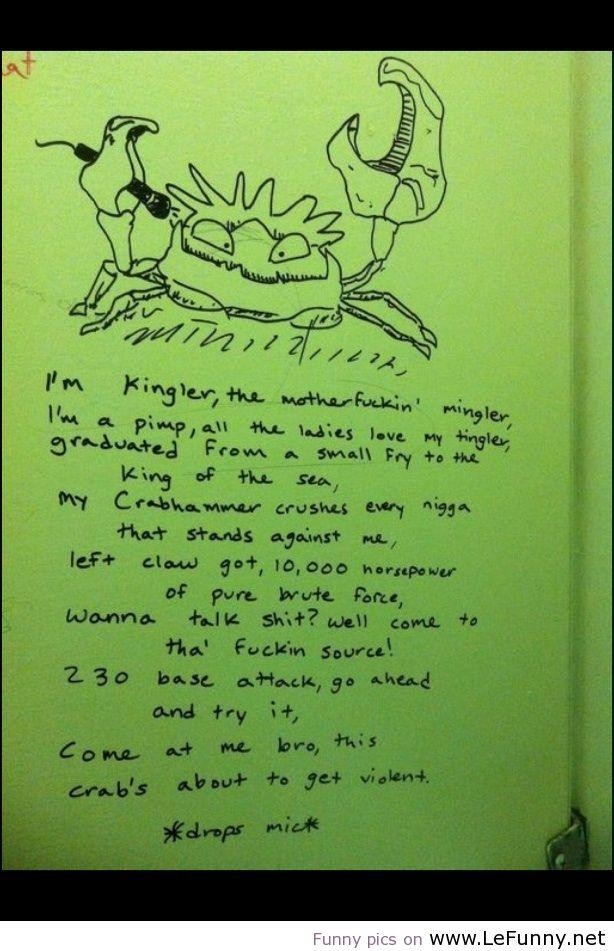 at
I'm Kingler, the motherfuckin' mingler,
I'm a pimp, all the ladies love my tingler,
graduated from a small fry to the
King of the sea,
my Crabhammer crushes every nigga
that stands against me,
left claw got, 10,000 horsepower
of pure brute force,
wanna talk shit? well come to
tha' fuckin source!
230 base attack, go ahead
and try it,
Come at me bro, this
crab's about to get violent.
*drops mic*
Funny pics on www.LeFunny.net